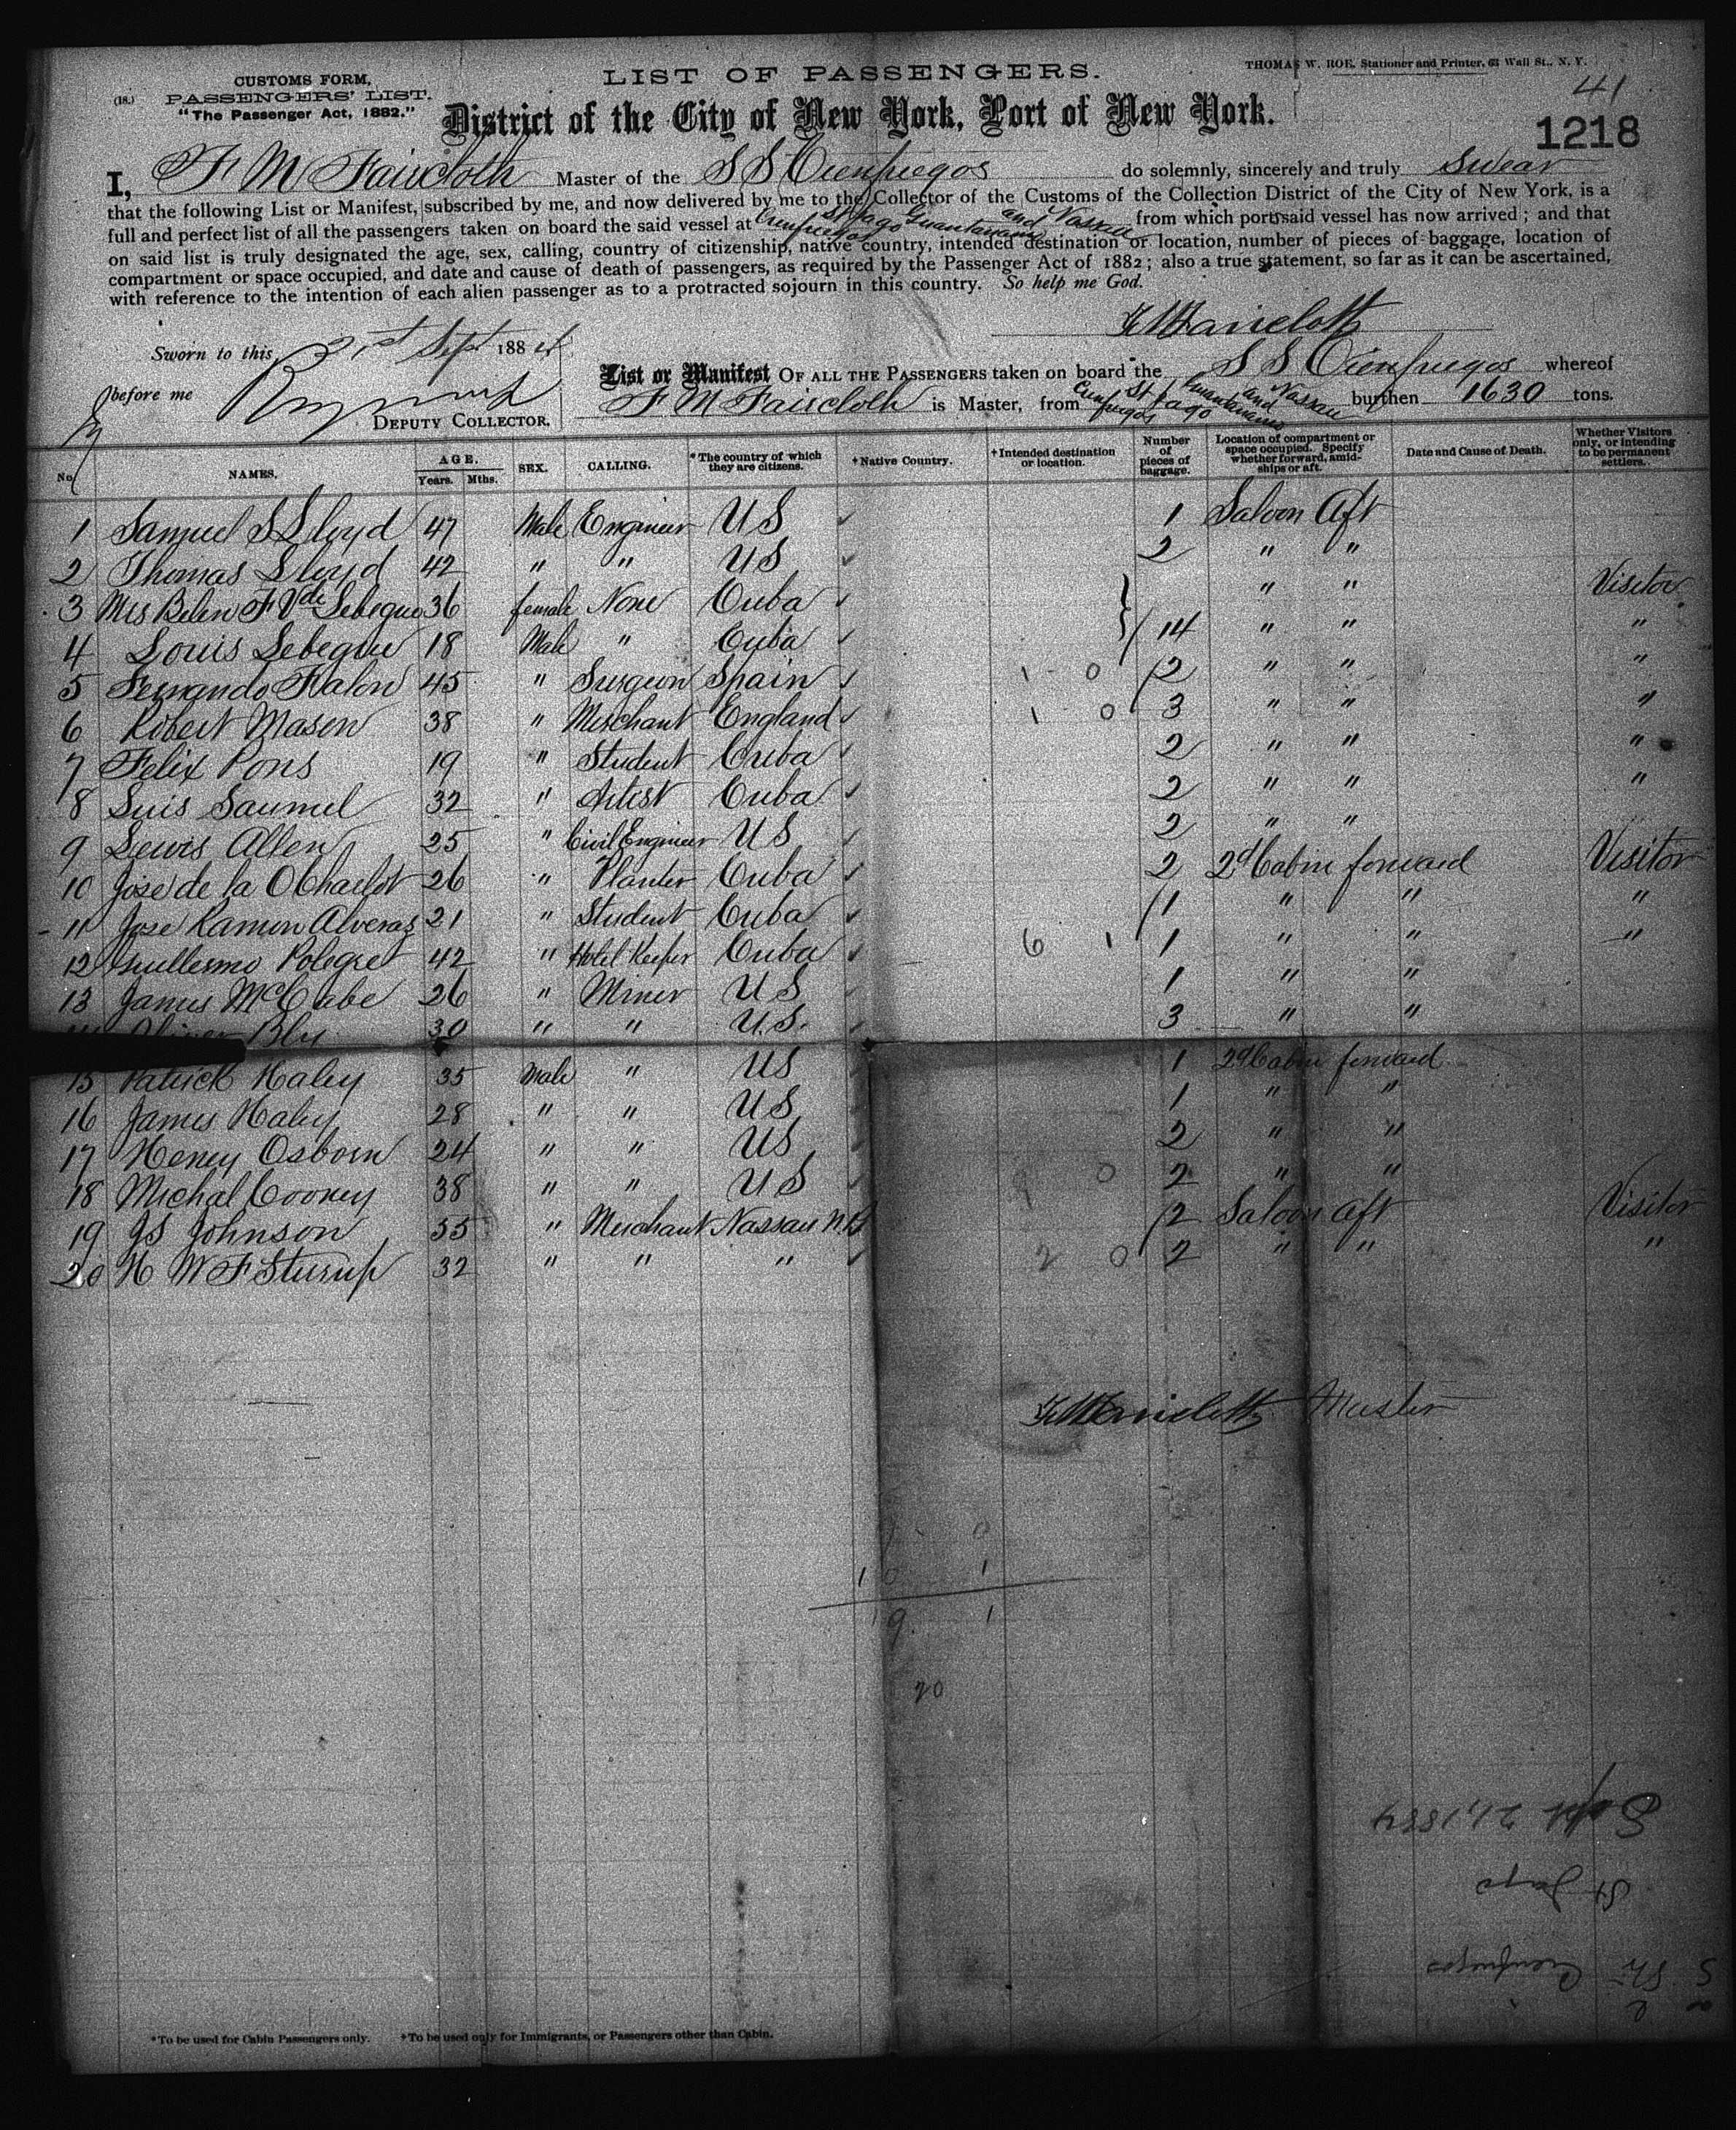 CUSTOMS FORM,
(18.) PASSENGERS' LIST.
"The Passenger Act, 1882."
LIST OF PASSENGERS.
THOMAS W. ROE, Stationer and Printer, 63 Wall St., N. Y.
41
District of the City of New York, Port of New York.
1218
I, F M Faircloth Master of the S S Cienfuegos do solemnly, sincerely and truly Swear
that the following List or Manifest, subscribed by me, and now delivered by me to the Collector of the Customs of the Collection District of the City of New York, is a
full and perfect list of all the passengers taken on board the said vessel at Cienfuegos St Jago Guantanamo and Nassau from which port said vessel has now arrived; and that
on said list is truly designated the age, sex, calling, country of citizenship, native country, intended destination or location, number of pieces of baggage, location of
compartment or space occupied, and date and cause of death of passengers, as required by the Passenger Act of 1882; also a true statement, so far as it can be ascertained,
with reference to the intention of each alien passenger as to a protracted sojourn in this country. So help me God.
F M Faircloth
Sworn to this 21st Sept 1884
before me
DEPUTY COLLECTOR.
List or Manifest OF ALL THE PASSENGERS taken on board the S S Cienfuegos whereof
F M Faircloth is Master, from Cienfuegos St Jago Guantanamo and Nassau burthen 1630 tons.
No. NAMES. AGE. Years. Mths. SEX. CALLING. *The country of which they are citizens. †Native Country. †Intended destination or location. Number of pieces of baggage. Location of compartment or space occupied. Specify whether forward, amidships or aft. Date and Cause of Death. Whether Visitors only, or intending to be permanent settlers.
1 Samuel S Lloyd 47 Male Engineer US 1 Saloon Aft
2 Thomas Lloyd 42 " " US 2 " "
3 Mrs Belen F Vde Lebeque 36 female None Cuba " " Visitor
4 Louis Lebeque 18 Male " Cuba 14 " " "
5 Fernando Kalon 45 " Surgeon Spain 1 0 2 " " "
6 Robert Mason 38 " Merchant England 1 0 3 " " "
7 Felix Pons 19 " Student Cuba 2 " " "
8 Luis Saumel 32 " Artist Cuba 2 " " "
9 Lewis Allen 25 " Civil Engineer US 2 " "
10 Jose de la O 26 " Planter Cuba 2 2d Cabin forward Visitor
11 Jose Ramon Alveraz 21 " Student Cuba 1 " " "
12 Guillermo Polegre 42 " Hotel Keeper Cuba 6 1 1 " " "
13 James McCabe 26 " Miner US 1 " "
Oliver Bly 30 " " U.S. 3 " "
15 Patrick Haley 35 Male " US 1 2d Cabin forward
16 James Haley 28 " " US 1 " "
17 Henry Osborn 24 " " US 2 " "
18 Michal Cooney 38 " " US 0 2 " "
19 JS Johnson 55 " Merchant Nassau N.P 2 Saloon aft Visitor
20 H W F Sturup 32 " " " 2 0 2 " " "
F M Faircloth Master
0
10 1
19 1
20
Sept 21, 1884
St Jago
Cienfuegos
*To be used for Cabin Passengers only. †To be used only for Immigrants, or Passengers other than Cabin.